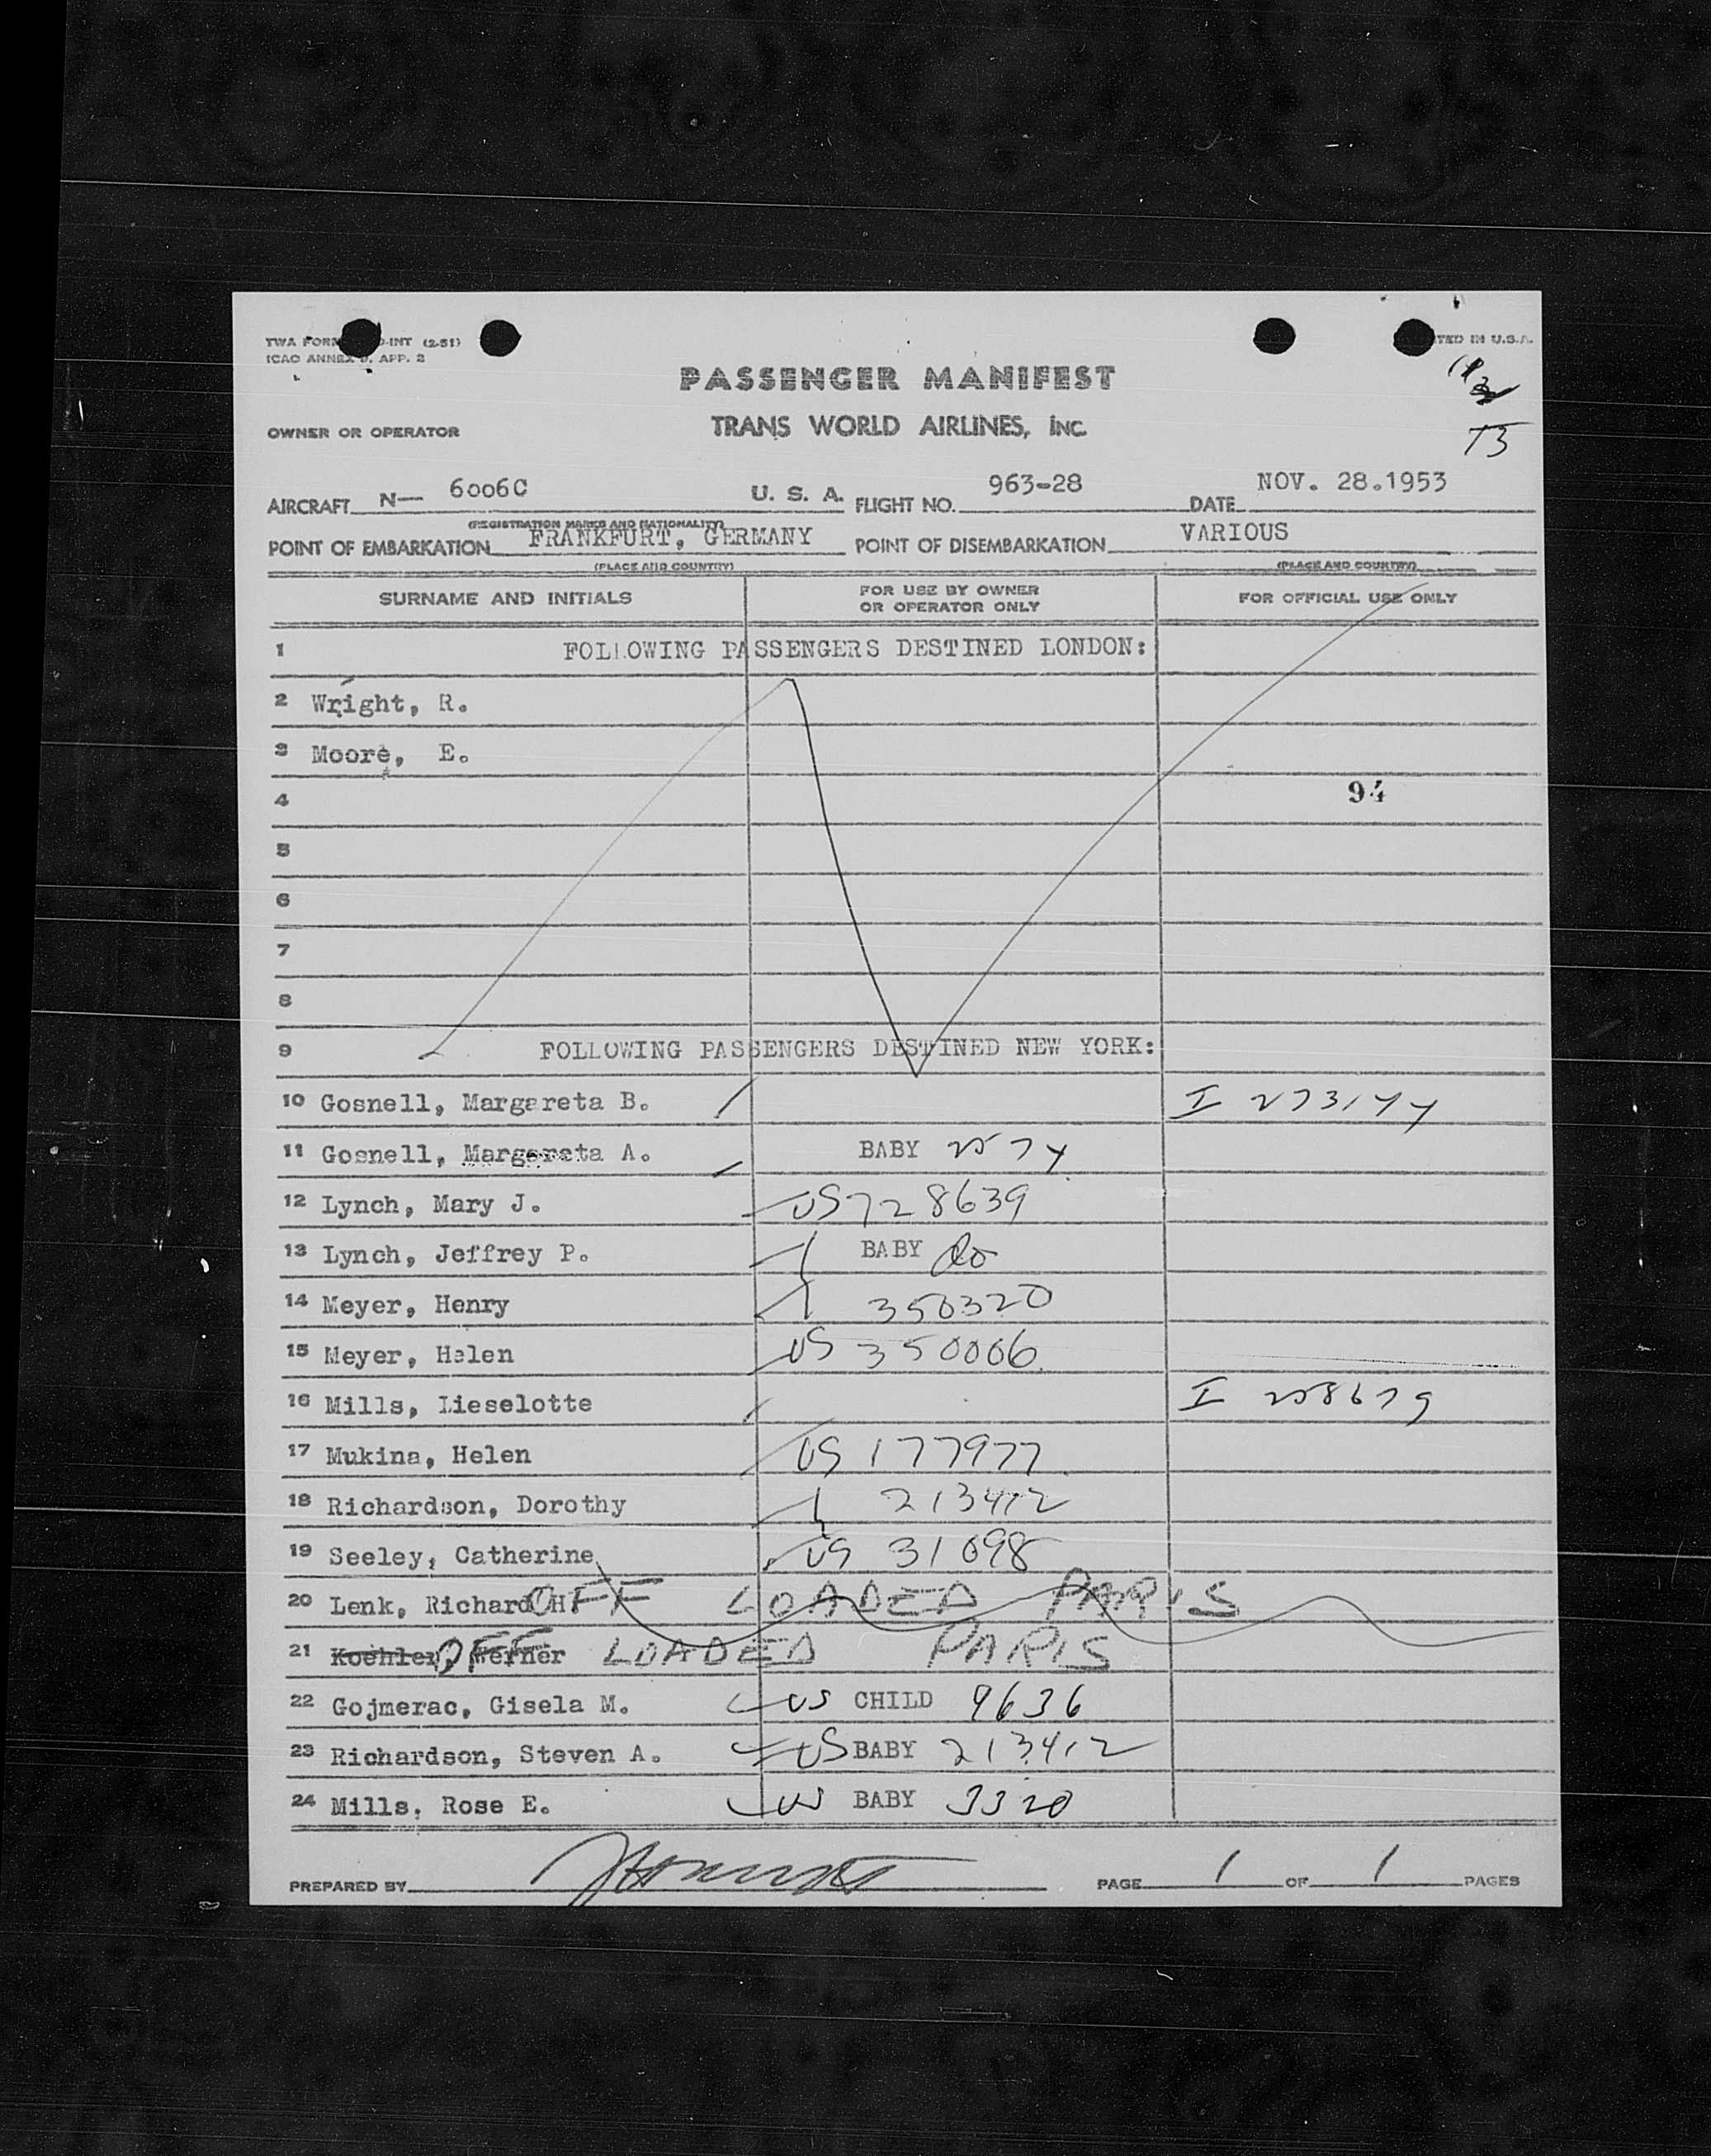 TWA FORM -INT (2-51)
ICAO ANNEX 9, APP. 2
TED IN U.S.A.
PASSENGER MANIFEST
OWNER OR OPERATOR
TRANS WORLD AIRLINES, INC.
13
AIRCRAFT N— 6006C U. S. A. FLIGHT NO. 963-28 DATE NOV. 28.1953
(REGISTRATION MARKS AND NATIONALITY)
POINT OF EMBARKATION FRANKFURT, GERMANY POINT OF DISEMBARKATION VARIOUS
(PLACE AND COUNTRY) (PLACE AND COUNTRY)
SURNAME AND INITIALS FOR USE BY OWNER OR OPERATOR ONLY FOR OFFICIAL USE ONLY
1 FOLLOWING PASSENGERS DESTINED LONDON:
2 Wright, R.
3 Moore, E.
4 94
5
6
7
8
9 FOLLOWING PASSENGERS DESTINED NEW YORK:
10 Gosnell, Margareta B. I
11 Gosnell, Margareta A. BABY
12 Lynch, Mary J. US 728639
13 Lynch, Jeffrey P. BABY do
14 Meyer, Henry 350320
15 Meyer, Helen US 350006
16 Mills, Lieselotte I 258679
17 Mukina, Helen US 177977
18 Richardson, Dorothy 213412
19 Seeley, Catherine US 31098
20 Lenk, Richard H. OFF LOADED PARIS
21 Koehler, Werner OFF LOADED PARIS
22 Gojmerac, Gisela M. US CHILD 9636
23 Richardson, Steven A. US BABY 213412
24 Mills, Rose E. US BABY 3320
PREPARED BY PAGE 1 OF 1 PAGES